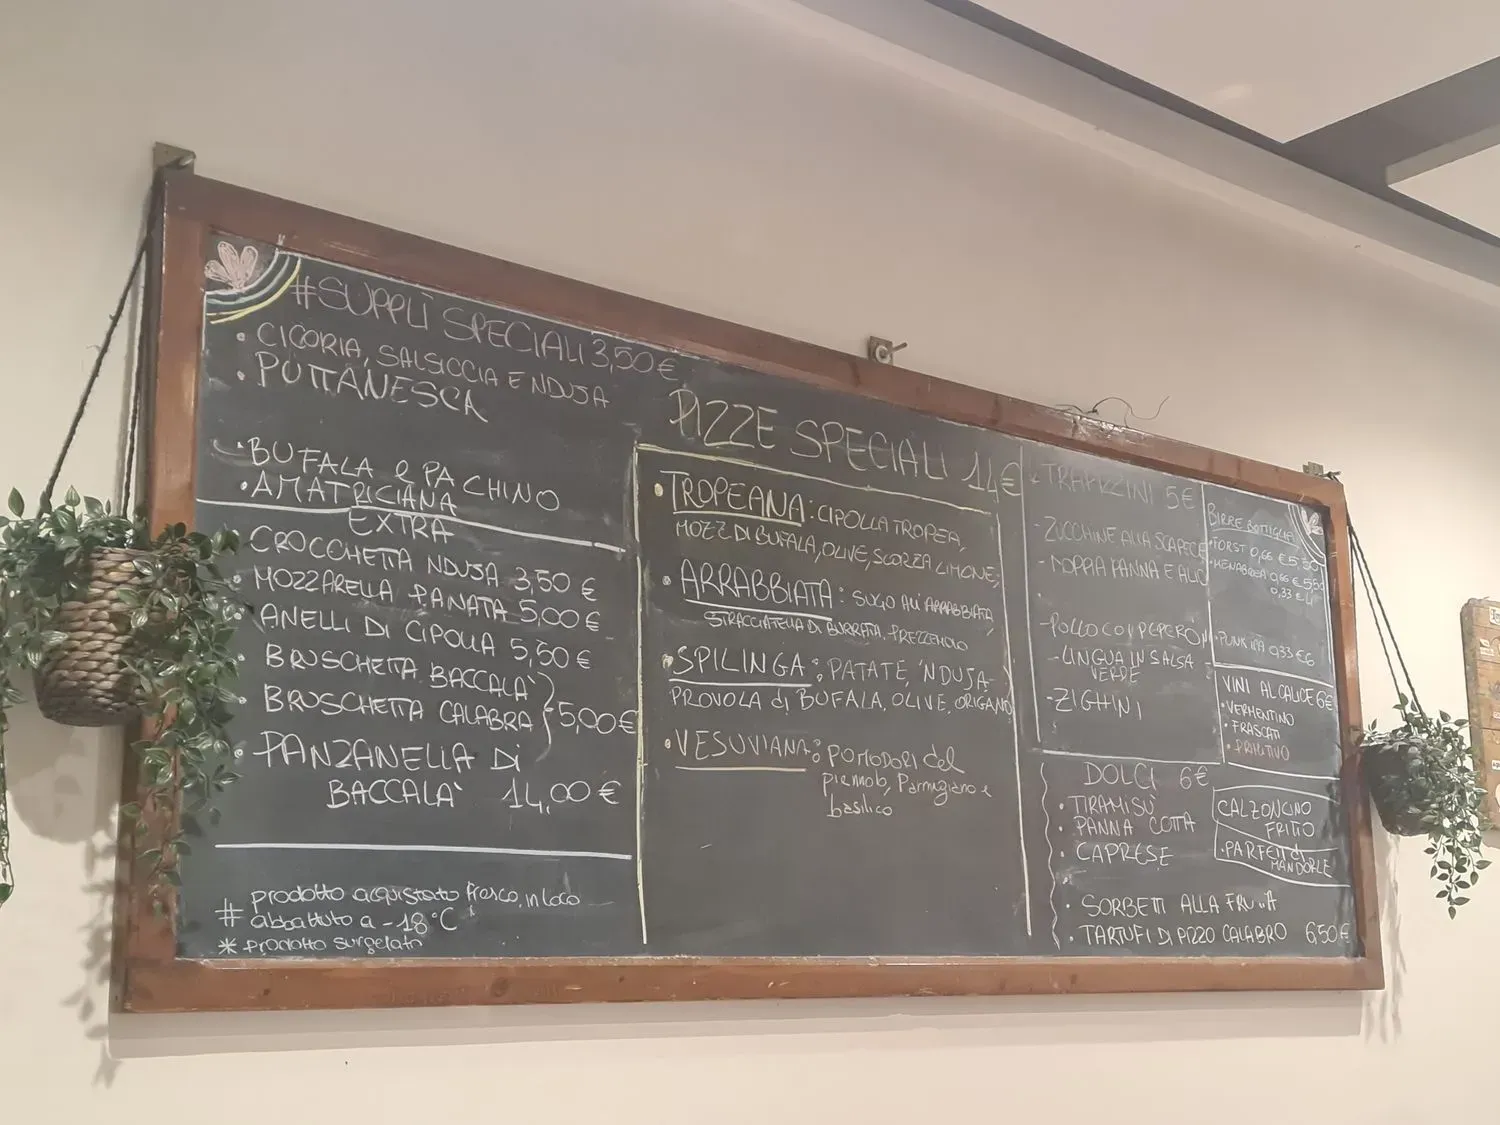 #SUPPLÌ SPECIALI 3,50€
• CICORIA, SALSICCIA E NDUJA
• PUTTANESCA
• BUFALA e PACHINO
• AMATRICIANA
EXTRA
• CROCCHETTA NDUJA 3,50 €
• MOZZARELLA PANATA 5,00 €
• ANELLI DI CIPOLLA 5,50 €
• BRUSCHETTA BACCALA'
• BRUSCHETTA CALABRA } 5,00€
• PANZANELLA DI
BACCALA' 14,00 €
# prodotto acquistato fresco, in loco
abbattuto a -18°C
* prodotto surgelato
PIZZE SPECIALI 14€
• TROPEANA: CIPOLLA TROPEA,
MOZZ DI BUFALA, OLIVE, SCORZA LIMONE;
• ARRABBIATA: SUGO ALL' ARRABBIATA
STRACCIATELLA DI BURRATA, PREZZEMOLO
• SPILINGA: PATATE, 'NDUJA,
PROVOLA di BUFALA, OLIVE, ORIGANO
• VESUVIANA: POMODORI del
piennolo, Parmigiano e
basilico
TRAPIZZINI 5€
- ZUCCHINE ALLA SCAPECE
- DOPPIA PANNA E ALICI
- POLLO CO I PEPERONI
- LINGUA IN SALSA
VERDE
- ZIGHINI
BIRRE BOTTIGLIA
• FORST 0,66 €
0,33 €
• PUNK IPA 0,33 €6
VINI AL CALICE 6€
• VERMENTINO
• FRASCATI
• PRIMITIVO
DOLCI 6€
• TIRAMISU'
• PANNA COTTA
• CAPRESE
CALZONCINO
FRITTO
• PARFEIT di
MANDORLE
• SORBETTI ALLA FRUTTA
• TARTUFI DI PIZZO CALABRO 6,50€